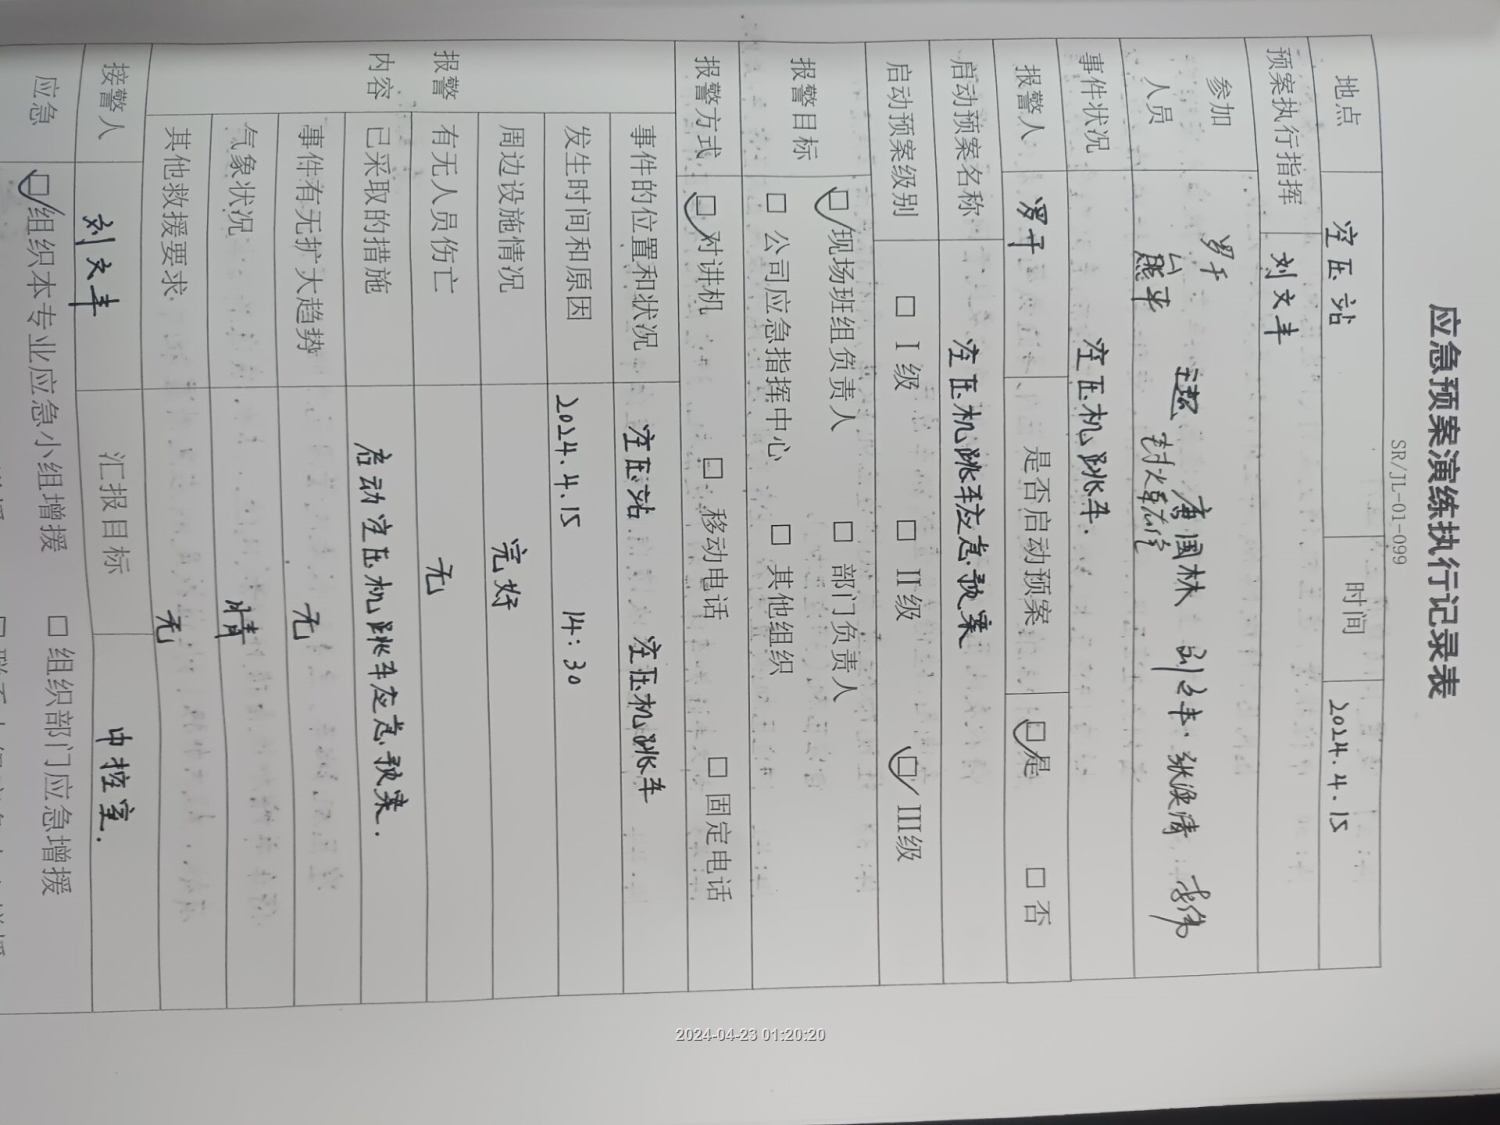 应急预案演练执行记录表
SR/JL-01-099
地点 空压站 时间 2024.4.15
预案执行指挥 刘文丰
参加人员 罗千 熊平 唐国林 张涣清 李伟
事件状况 空压机跳车.
报警人 罗千 是否启动预案 ☑是 □否
启动预案名称 空压机跳车应急预案
启动预案级别 □ I级 □ II级 ☑ III级
报警目标 ☑现场班组负责人 □ 部门负责人
□ 公司应急指挥中心 □ 其他组织
报警方式 ☑对讲机 □ 移动电话 □ 固定电话
报警内容 事件的位置和状况 空压站 空压机跳车
发生时间和原因 2024.4.15 14:30
周边设施情况 完好
有无人员伤亡 无
已采取的措施 启动空压机跳车应急预案.
事件有无扩大趋势 无
气象状况 晴
其他救援要求 无
接警人 刘文丰 汇报目标 中控室.
应急 ☑组织本专业应急小组增援 □ 组织部门应急增援
2024-04-23 01:20:20